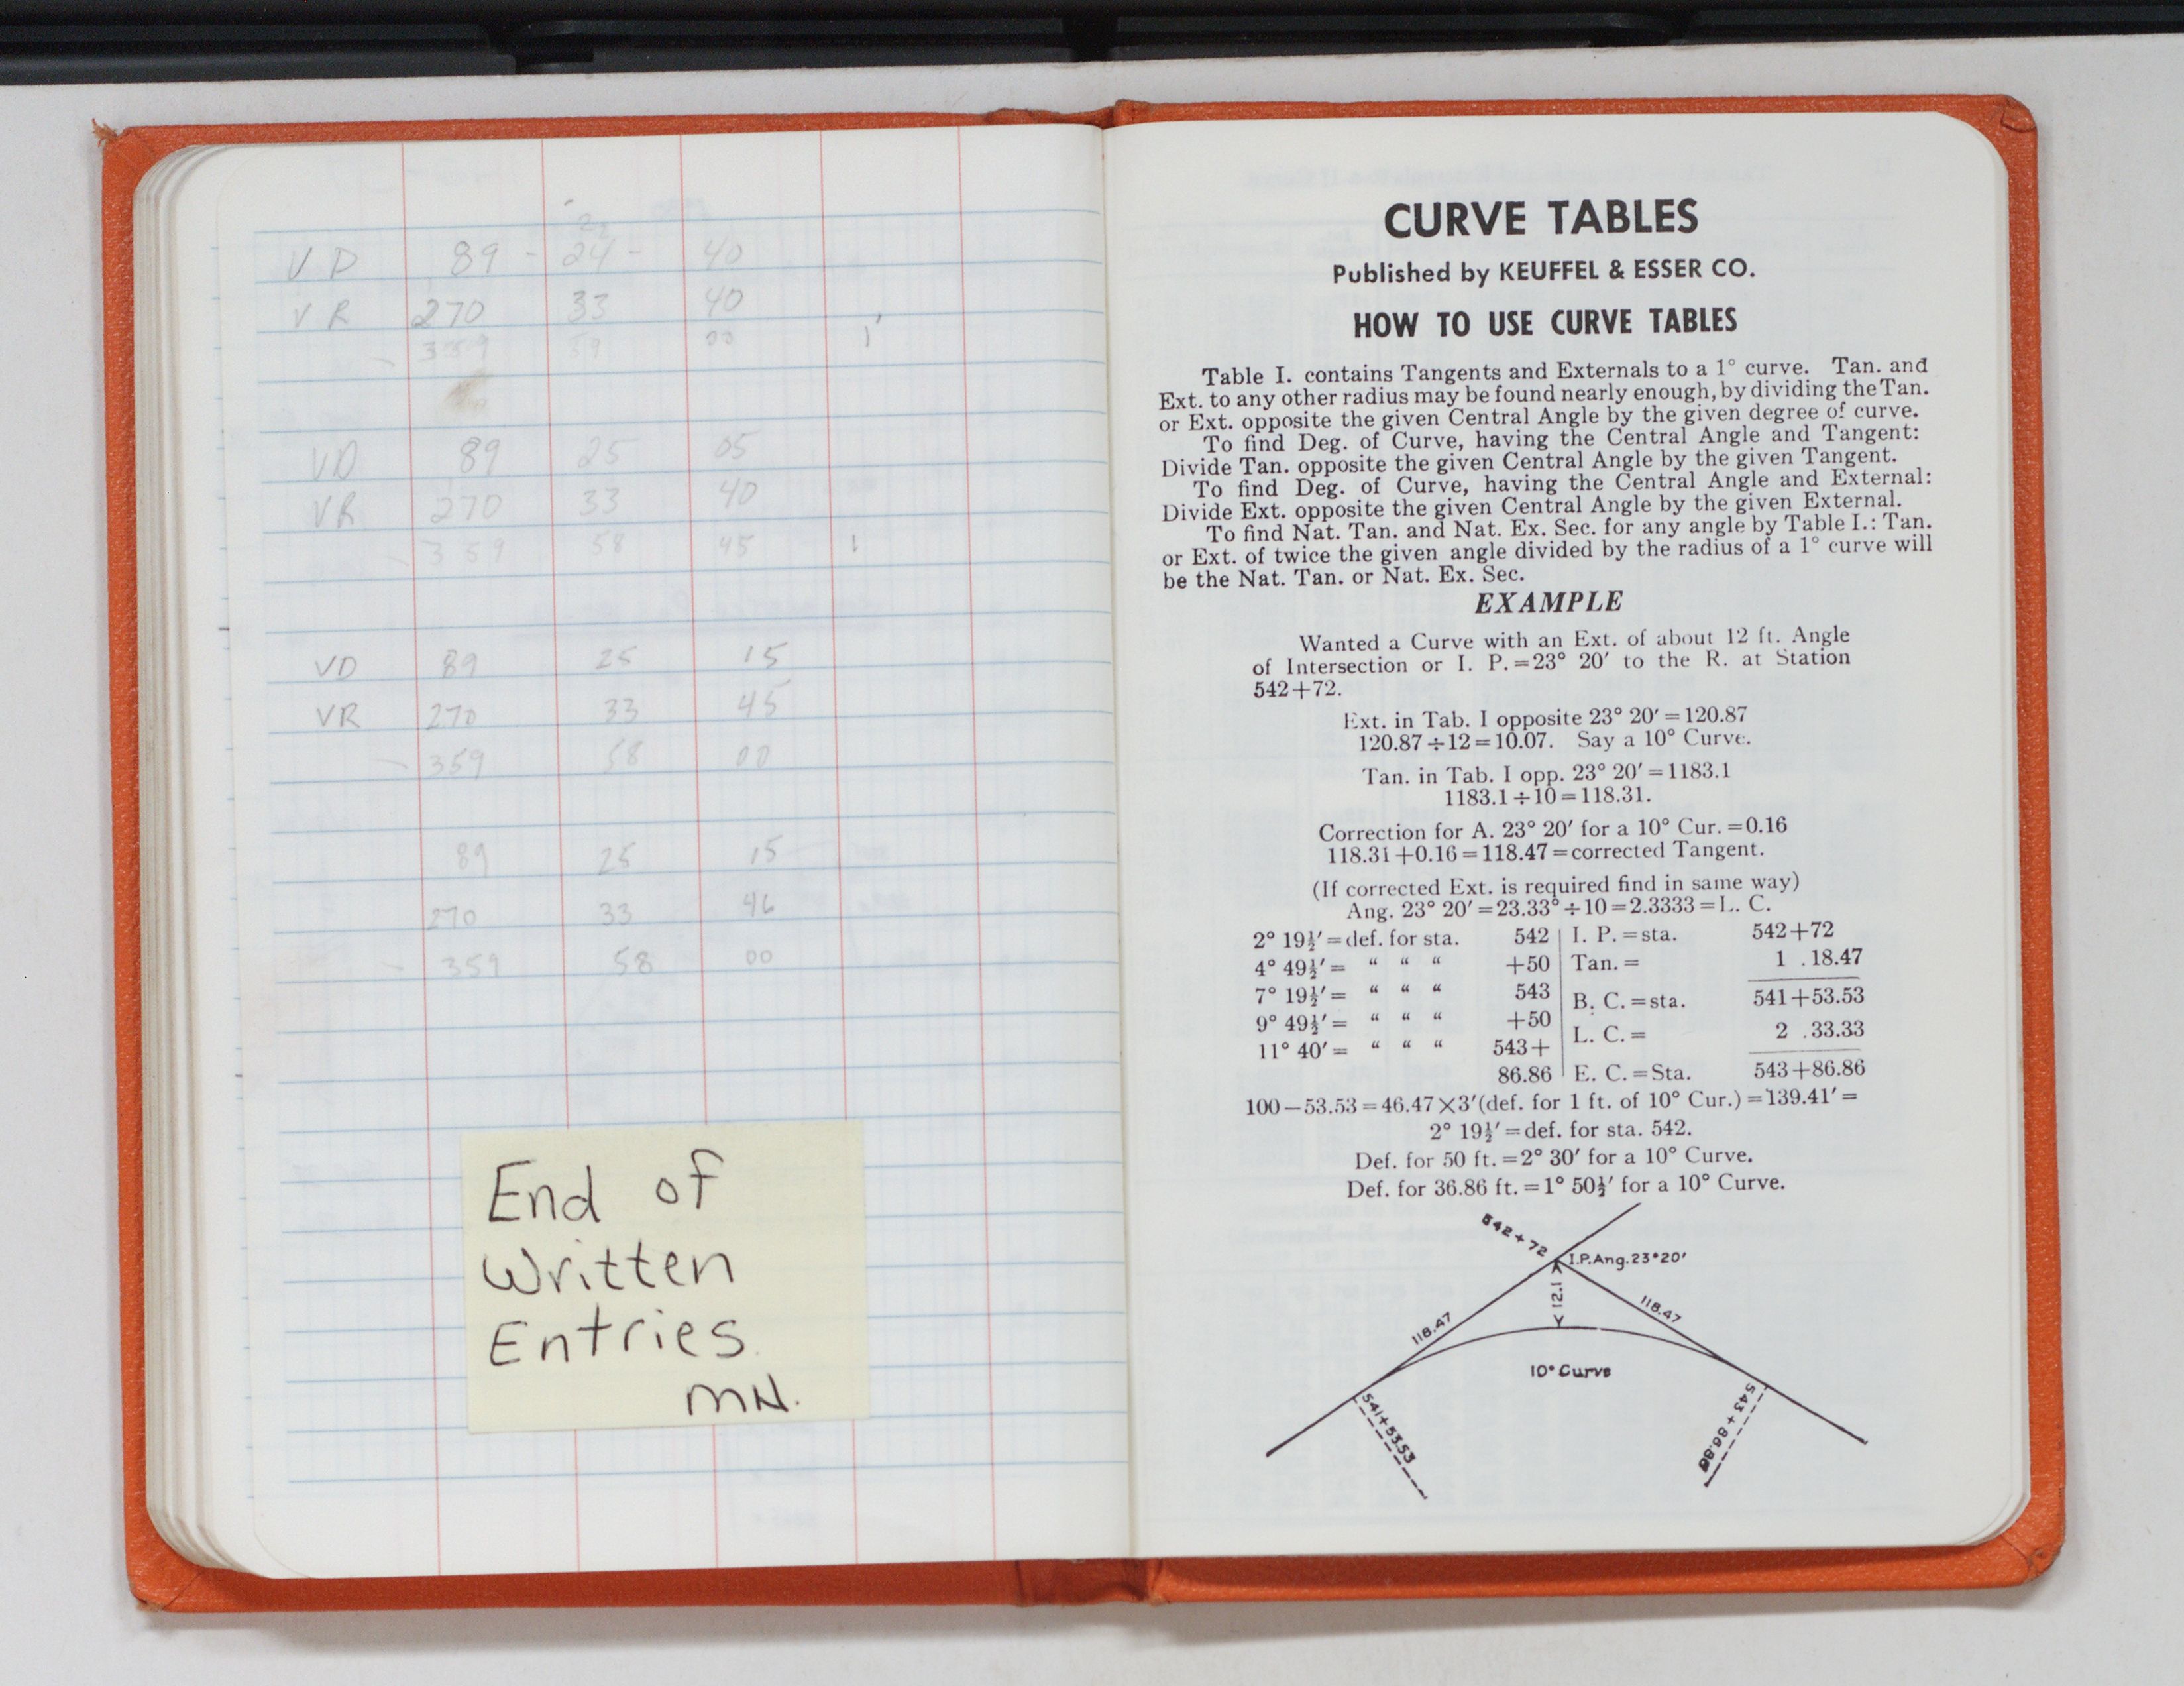 22
V D 89 - 24 - 40
V R 270 33 40
359 59 00 1'
VD 89 25 05
VR 270 33 40
359 58 45 1
VD 89 25 15
VR 270 33 45
359 58 00
89 25 15
270 33 46
359 58 00
End of
Written
Entries
MN.
CURVE TABLES
Published by KEUFFEL & ESSER CO.
HOW TO USE CURVE TABLES
Table I. contains Tangents and Externals to a 1° curve. Tan. and
Ext. to any other radius may be found nearly enough, by dividing the Tan.
or Ext. opposite the given Central Angle by the given degree of curve.
To find Deg. of Curve, having the Central Angle and Tangent:
Divide Tan. opposite the given Central Angle by the given Tangent.
To find Deg. of Curve, having the Central Angle and External:
Divide Ext. opposite the given Central Angle by the given External.
To find Nat. Tan. and Nat. Ex. Sec. for any angle by Table I.: Tan.
or Ext. of twice the given angle divided by the radius of a 1° curve will
be the Nat. Tan. or Nat. Ex. Sec.
EXAMPLE
Wanted a Curve with an Ext. of about 12 ft. Angle
of Intersection or I. P.=23° 20′ to the R. at Station
542+72.
Ext. in Tab. I opposite 23° 20′=120.87
120.87÷12=10.07. Say a 10° Curve.
Tan. in Tab. I opp. 23° 20′=1183.1
1183.1÷10=118.31.
Correction for A. 23° 20′ for a 10° Cur.=0.16
118.31+0.16=118.47=corrected Tangent.
(If corrected Ext. is required find in same way)
Ang. 23° 20′=23.33°÷10=2.3333=L. C.
2° 19½′=def. for sta. 542 I. P.=sta. 542+72
4° 49½′= “ “ “ +50 Tan.= 1 .18.47
7° 19½′= “ “ “ 543 B. C.=sta. 541+53.53
9° 49½′= “ “ “ +50 L. C.= 2 .33.33
11° 40′= “ “ “ 543+
86.86 E. C.=Sta. 543+86.86
100−53.53=46.47×3′(def. for 1 ft. of 10° Cur.)=139.41′=
2° 19½′=def. for sta. 542.
Def. for 50 ft.=2° 30′ for a 10° Curve.
Def. for 36.86 ft.=1° 50½′ for a 10° Curve.
542+72
I.P.Ang.23°20′
12.1
118.47
118.47
10° Curve
541+53.53
543+86.86